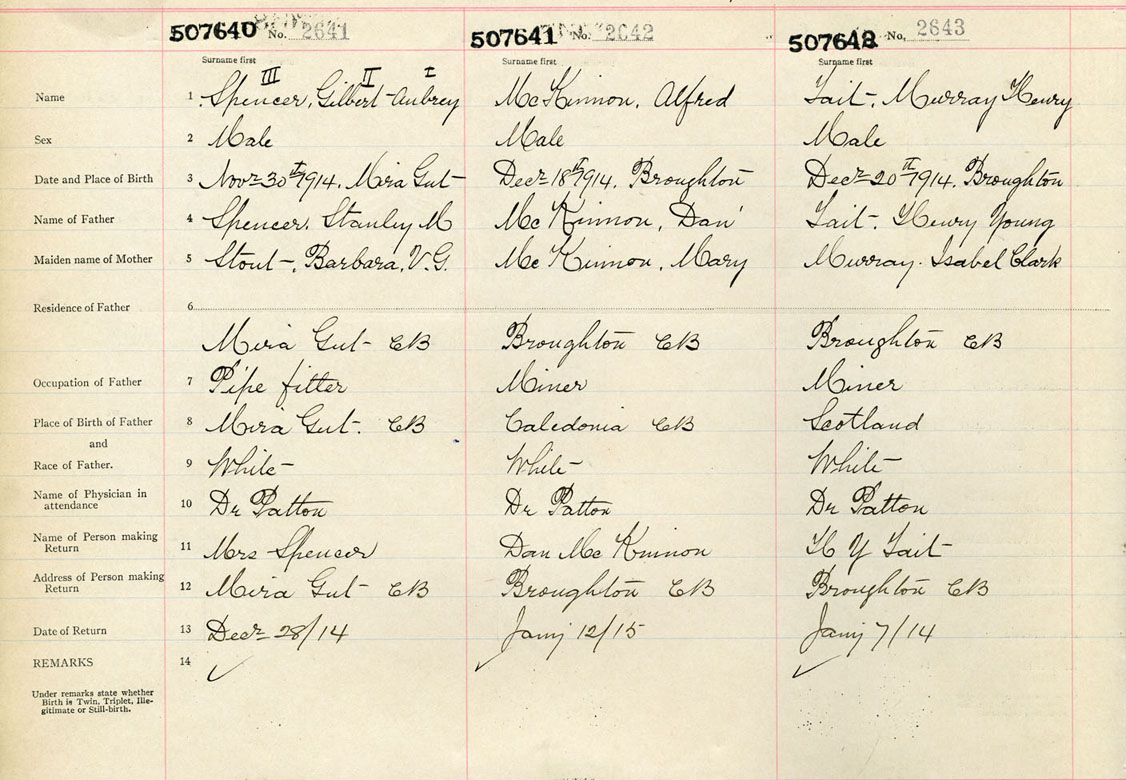 507640 No. 2641 507641 No. 2642 507642 No. 2643
Surname first Surname first Surname first
III II I
Name 1 Spencer, Gilbert Aubrey McKinnon, Alfred Tait, Murray Henry
Sex 2 Male Male Male
Date and Place of Birth 3 Novr 30th 1914. Mira Gut Decr 18th 1914. Broughton Decr 20th 1914. Broughton
Name of Father 4 Spencer, Stanley M McKinnon, Dan Tait, Henry Young
Maiden name of Mother 5 Stout, Barbara, V.G. McKinnon, Mary Murray. Isabel Clark
Residence of Father 6
Mira Gut CB Broughton CB Broughton CB
Occupation of Father 7 Pipe fitter Miner Miner
Place of Birth of Father 8 Mira Gut. CB Caledonia CB Scotland
and
Race of Father. 9 White White White
Name of Physician in
attendance 10 Dr Patton Dr Patton Dr Patton
Name of Person making
Return 11 Mrs Spencer Dan McKinnon H Y Tait
Address of Person making
Return 12 Mira Gut CB Broughton CB Broughton CB
Date of Return 13 Decr 28/14 Jany 12/15 Jany 7/14
REMARKS 14
Under remarks state whether
Birth is Twin, Triplet, Ille-
gitimate or Still-birth.